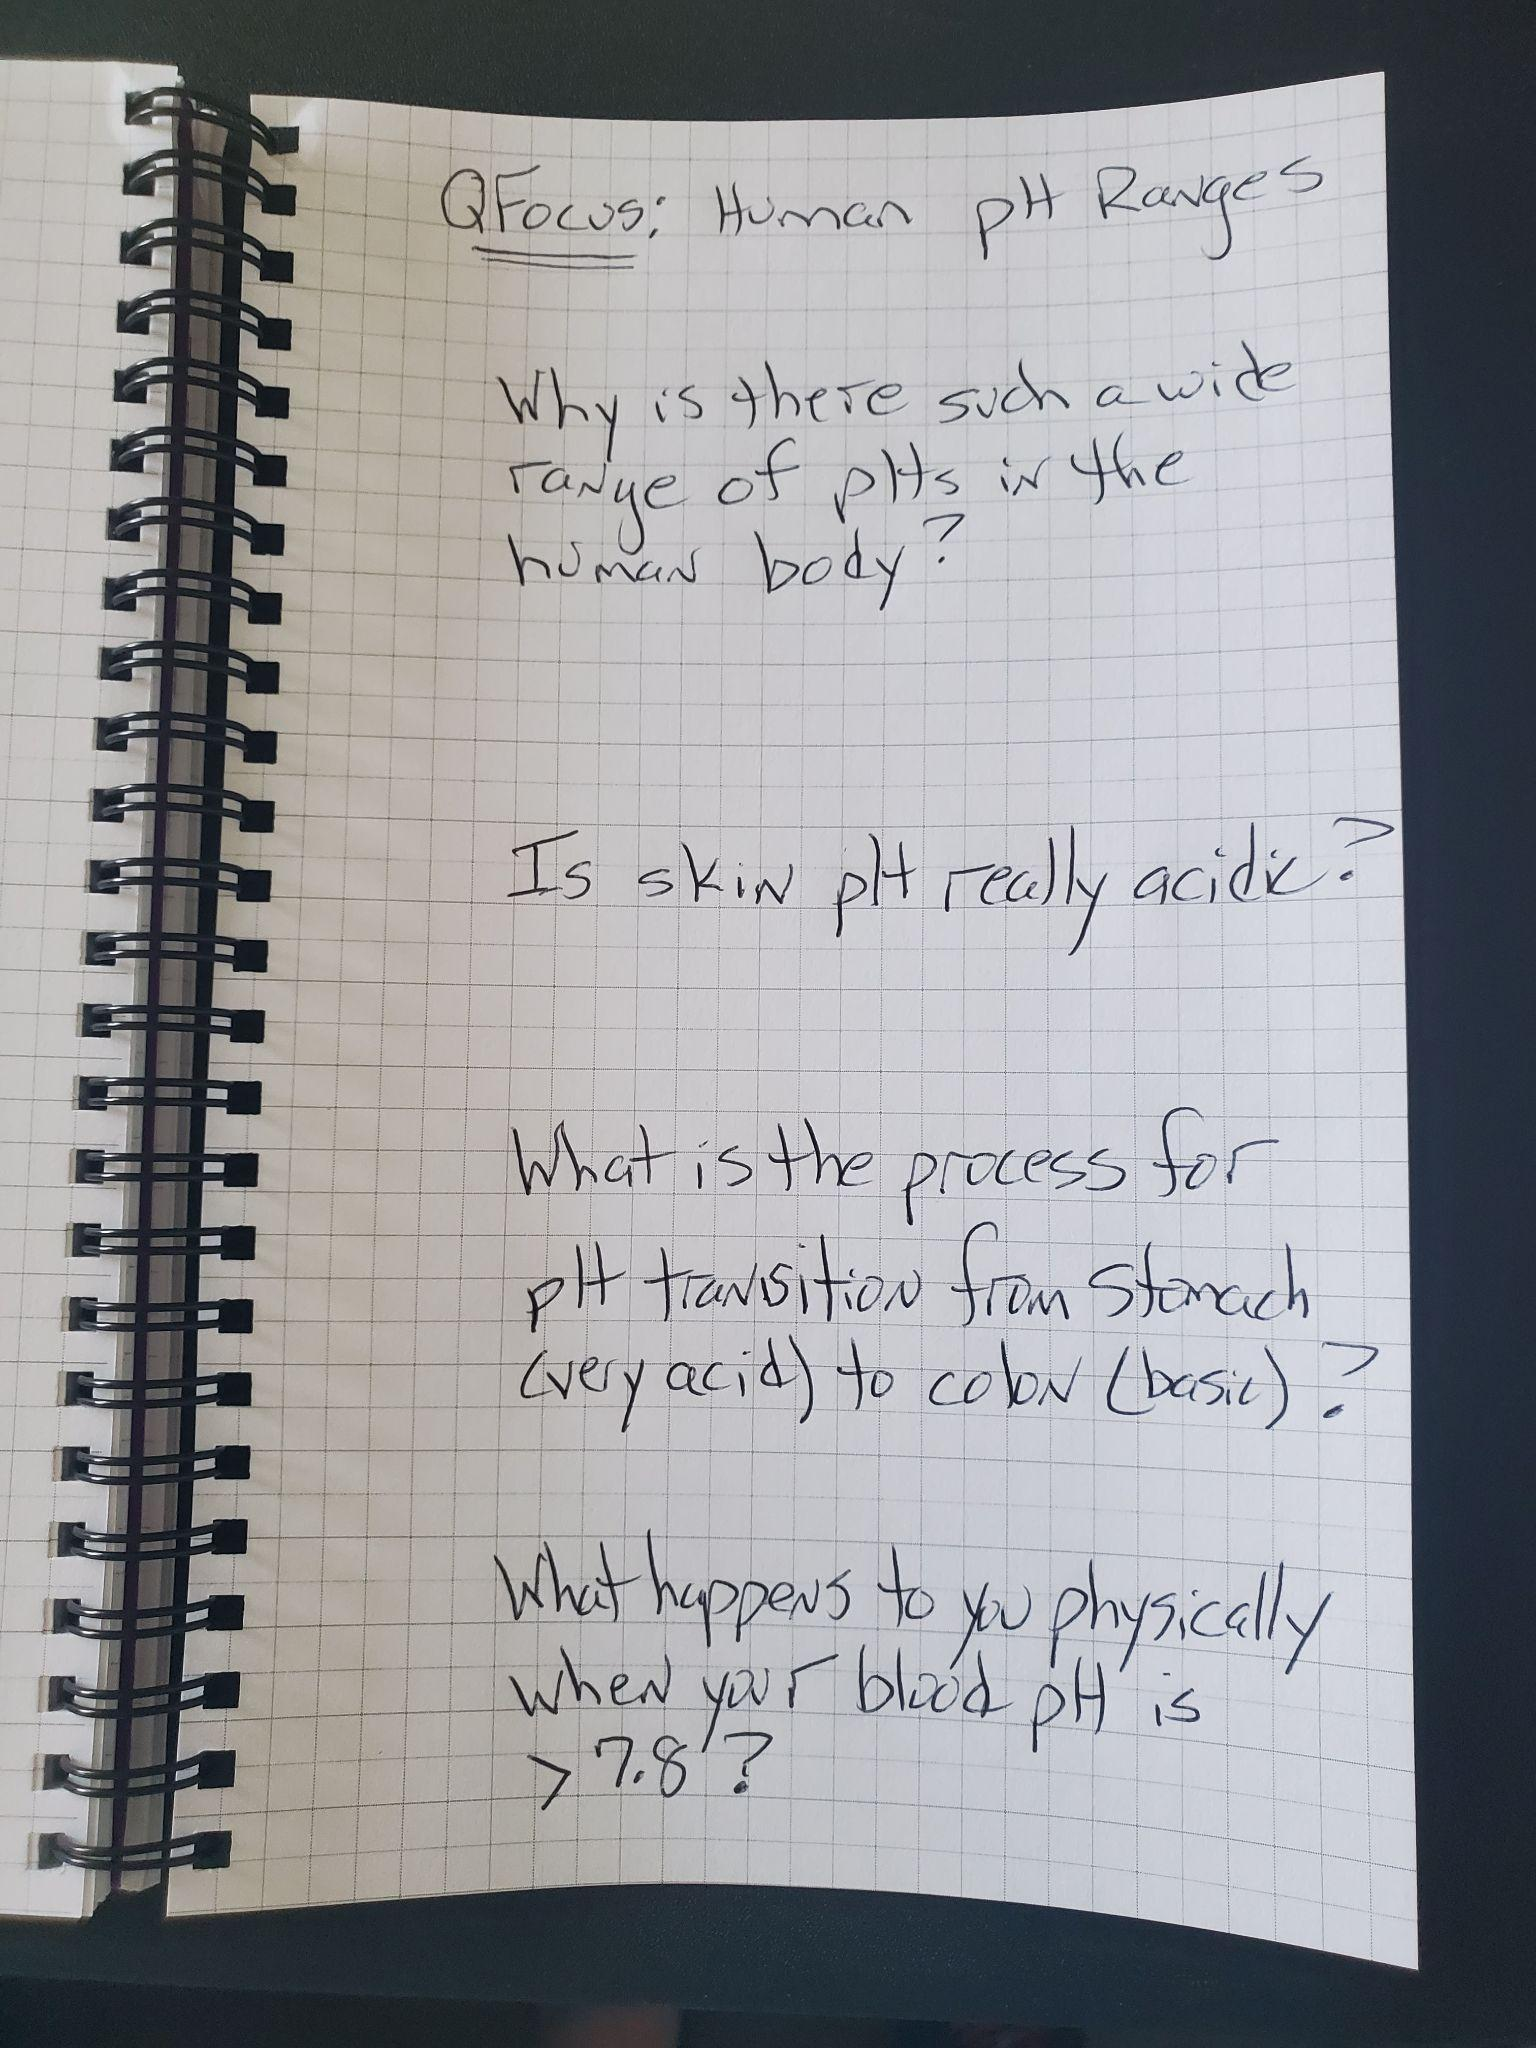 QFocus: Human pH Ranges
Why is there such a wide
range of pHs in the
human body?
Is skin pH really acidic?
What is the process for
pH transition from stomach
(very acid) to colon (basic)?
What happens to you physically
when your blood pH is
> 7.8?